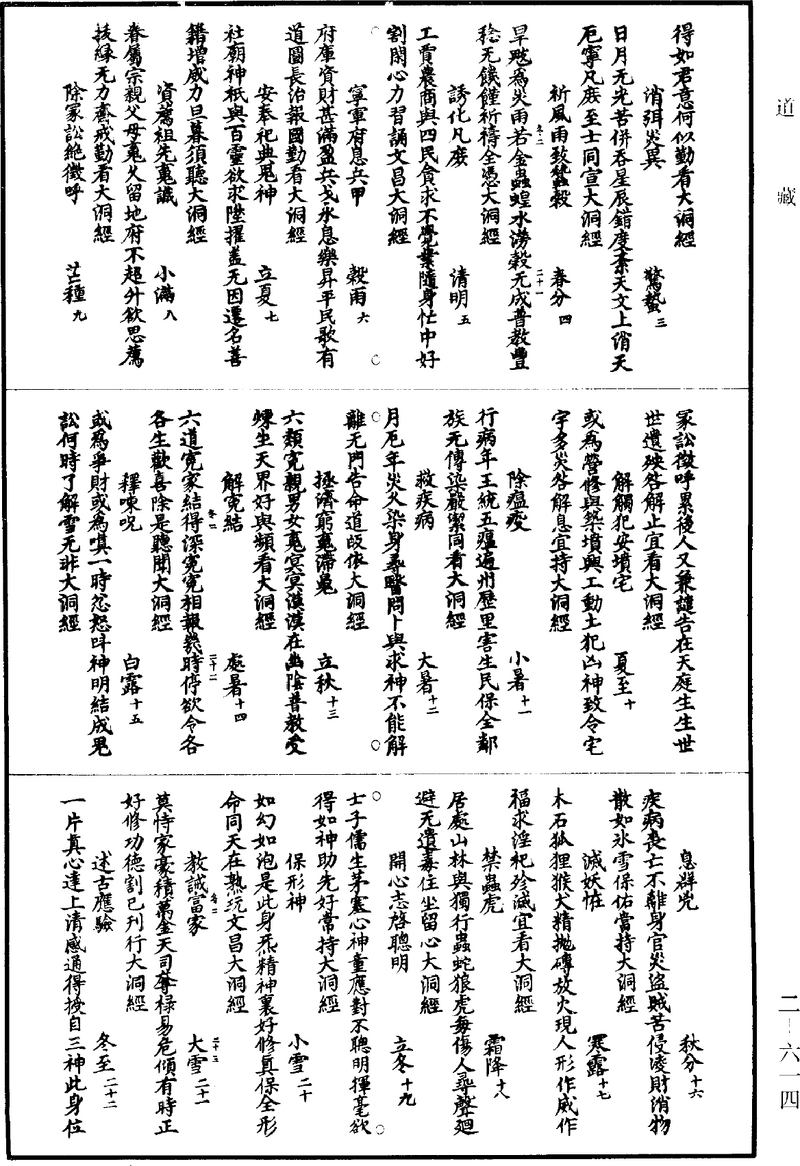 道藏
得如君意何似勤看大洞經
消弭災異　驚蟄三
日月无光苦併吞星辰錯度紊天文上消天
厄寧凡庶至士同宣大洞經
祈風雨致蠶穀　春分四
旱魃為災雨若金蟲蝗水澇穀无成普教豐
稔无饑饉祈禱全憑大洞經
誘化凡庶　清明五
工賈農商與四民貪求不覺業隨身忙中好
割閑心力習誦文昌大洞經
寧軍府息兵甲　穀雨六
府庫資財甚滿盈兵戈永息樂昇平民歌有
道圖長治報國勤看大洞經
安奉祀典鬼神　立夏七
社廟神祇與百靈欲求陞擢盖无因遷名善
籍增威力旦暮須聽大洞經
資薦祖先䰟識　小滿八
眷屬宗親父母䰟久留地府不超升欲思薦
拔緣无力齋戒勤看大洞經
除冢訟絶徵呼　芒種九
冢訟徵呼累後人又兼譴告在天庭生生世
世遺殃咎解止宜看大洞經
解觸犯安墳宅　夏至十
或為營修與築墳興工動土犯凶神致令宅
宇多災咎解息宜持大洞經
除瘟疫　小暑十一
行病年王統五瘟遍州歷里害生民保全鄰
族无傳染嚴潔同看大洞經
救疾病　大暑十二
月厄年災久染身尋醫問卜與求神不能解
離无門告命道皈依大洞經
拯濟窮䰟滯魄　立秋十三
六類寃親男女䰟冥冥漠漠在幽陰普教受
煉生天界好與頻看大洞經
解寃結　處暑十四
六道寃家結得深寃寃相報幾時停欲令各
各生歡喜除是聽聞大洞經
釋呪咀　白露十五
或為爭財或為嗔一時忿怒呌神明結成鬼
訟何時了解雪无非大洞經
息群兇　秋分十六
疾病喪亡不離身官災盜賊苦侵凌財消物
散如氷雪保佑當持大洞經
滅妖怪　寒露十七
木石狐狸猴犬精拋磚放火現人形作威作
福求淫祀殄滅宜看大洞經
禁蟲虎　霜降十八
居處山林與獨行蟲蛇狼虎每傷人尋聲迴
避无遺毒住坐留心大洞經
開心志啓聰明　立冬十九
士子儒生茅塞心神童應對不聰明揮毫欲
得如神助先好常持大洞經
保形神　小雪二十
如幻如泡是此身炁精神裏好修真保全形
命同天在熟玩文昌大洞經
教誡富家　大雪二十一
莫恃家豪積萬金天司奪祿易危傾有時正
好修功德割已刋行大洞經
述古應驗　冬至二十二
一片真心達上清感通得授自三神此身位
二-六一四